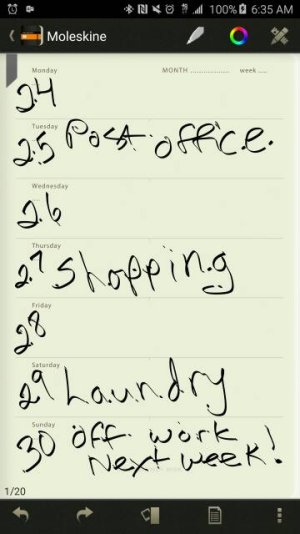 100% 6:35 AM
Moleskine
Monday MONTH .................. week .....
24
Tuesday
25 Post office.
Wednesday
26
Thursday
27 Shopping
Friday
28
Saturday
29 Laundry
Sunday
30 Off work
Next week!
1/20